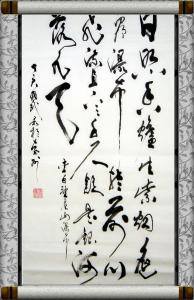 日照香爐生紫烟遙
看瀑布挂前川
飛流直下三千尺疑是銀河
落九天
李白望廬山瀑布